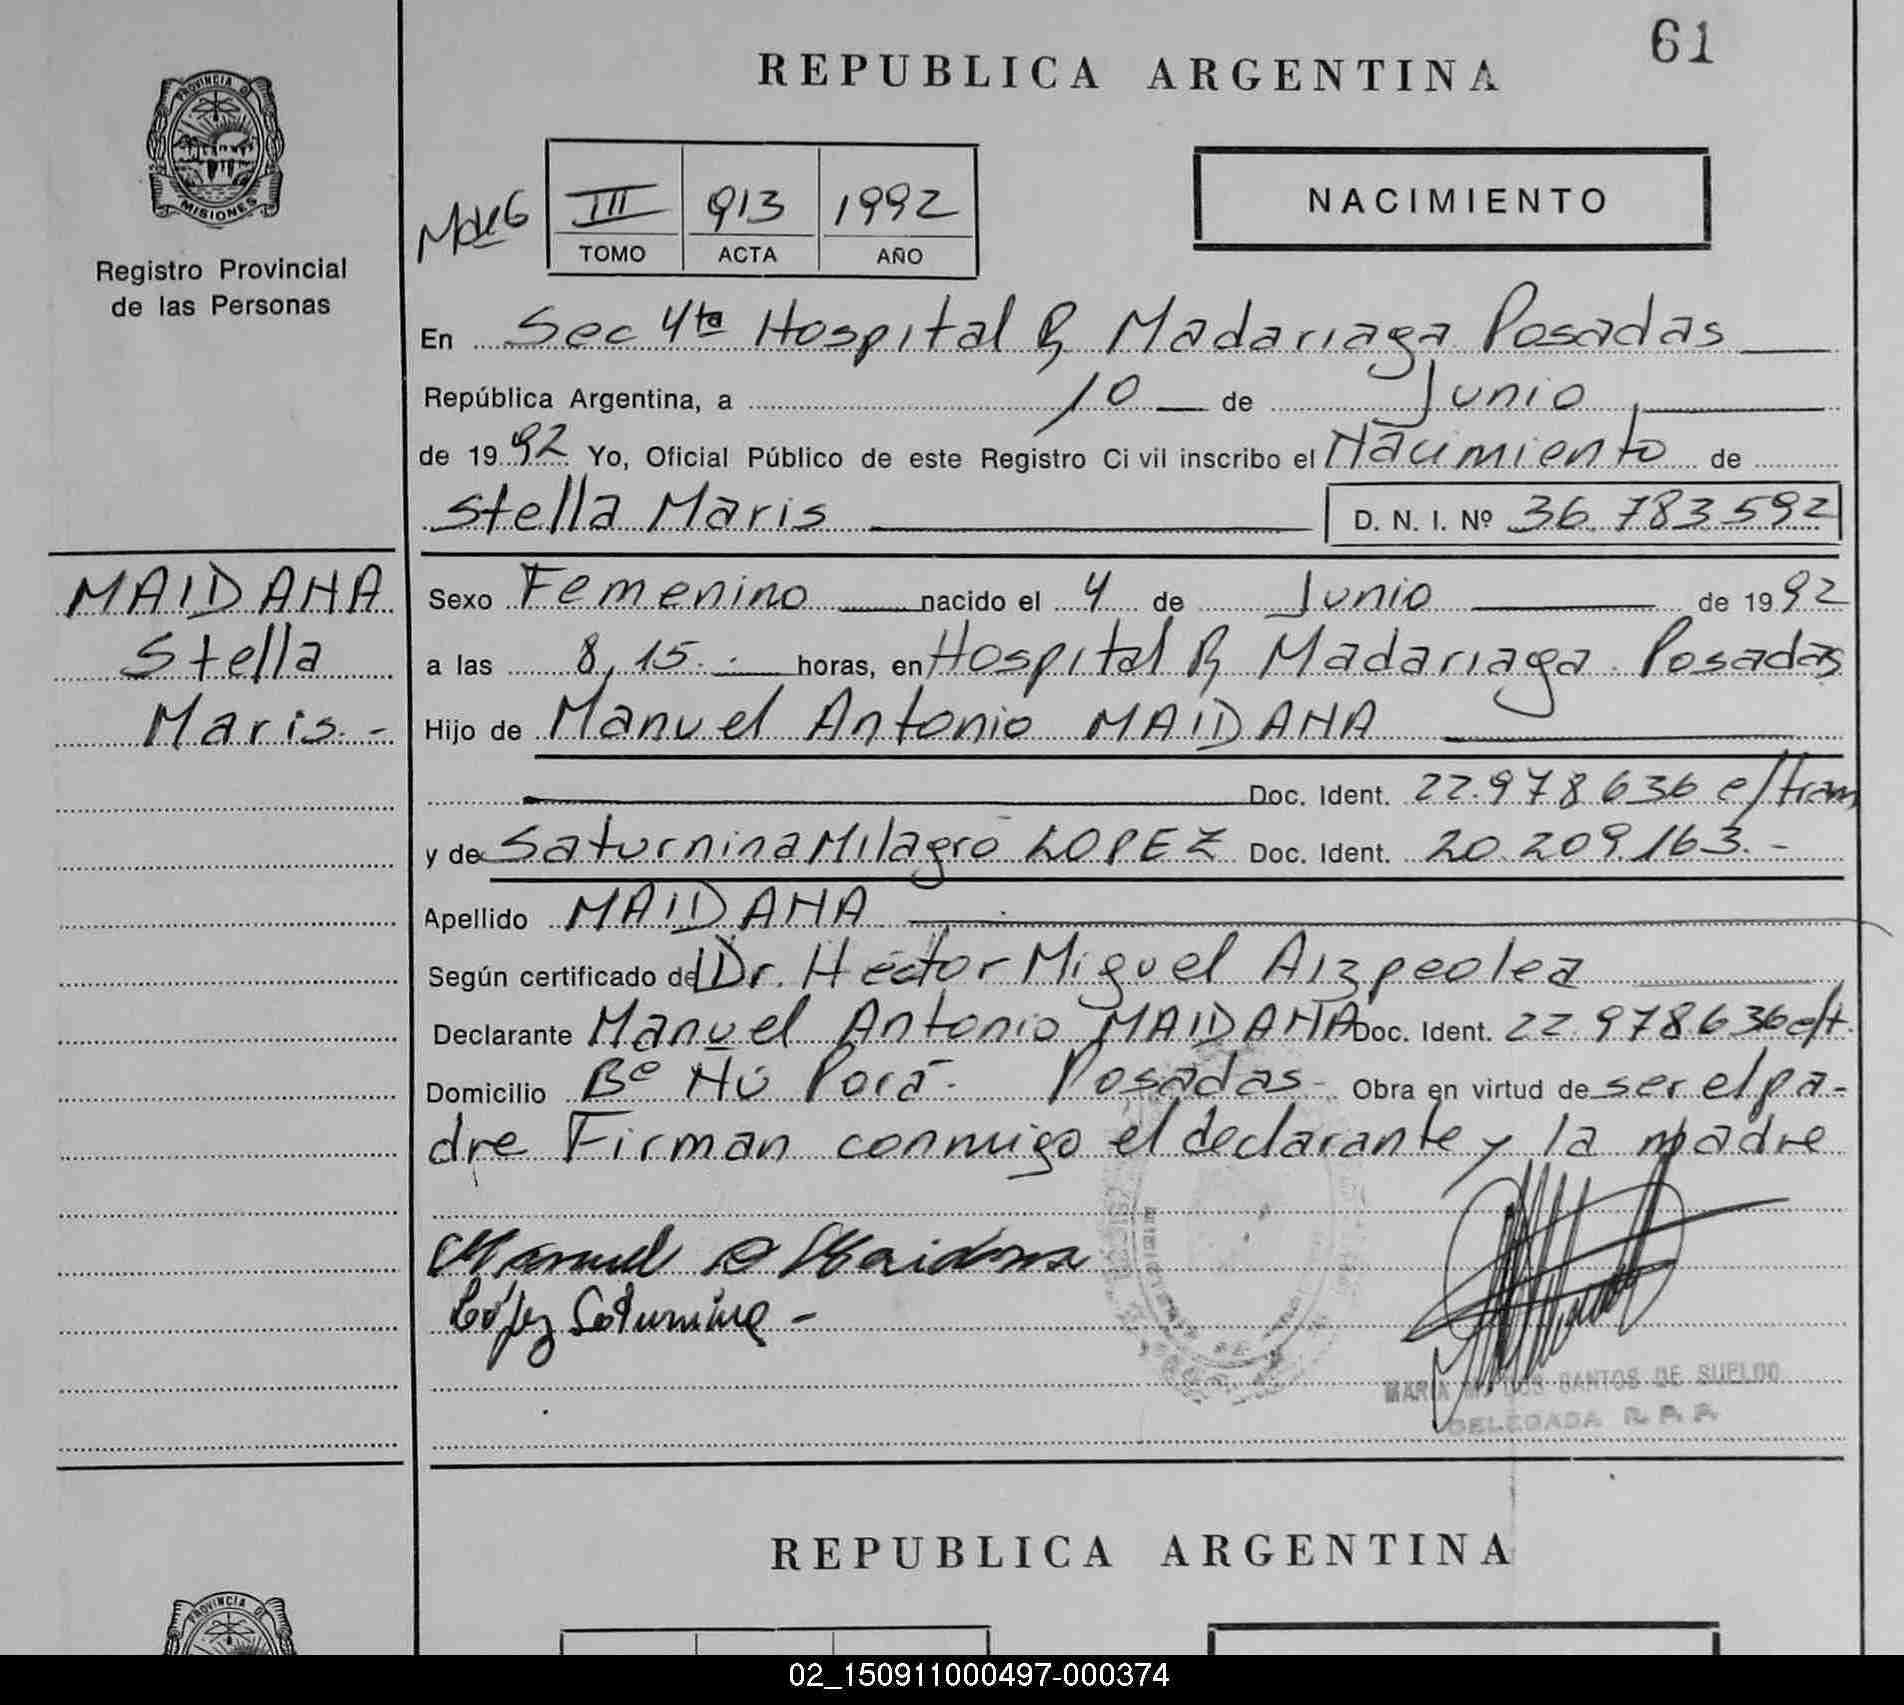 61
REPUBLICA ARGENTINA
PROVINCIA D
MISIONES
Registro Provincial
de las Personas
III 913 1992
TOMO ACTA AÑO
NACIMIENTO
En Sec 4ta Hospital R Madariaga Posadas
República Argentina, a 10 de Junio
de 1992 Yo, Oficial Público de este Registro Civil inscribo el Nacimiento de
Stella Maris D. N. I. Nº 36.783.592
MAIDANA
Stella
Maris.-
Sexo Femenino nacido el 4 de Junio de 1992
a las 8,15.. horas, en Hospital R Madariaga Posadas
Hijo de Manuel Antonio MAIDANA
Doc. Ident. 22.978.636 e/tram
y de Saturnina Milagro LOPEZ Doc. Ident. 20.209.163.-
Apellido MAIDANA
Según certificado de Dr. Héctor Miguel Aizpeolea
Declarante Manuel Antonio MAIDANA Doc. Ident. 22.978.636 e/t.
Domicilio Bº Ñu Porá. Posadas- Obra en virtud de ser el pa-
dre Firman conmigo el declarante y la madre
Manuel A Maidana
López Saturnina -
MARIA DOS SANTOS DE SUELDO
DELEGADA R. P. P.
REPUBLICA ARGENTINA
PROVINCIA DE
02_150911000497-000374